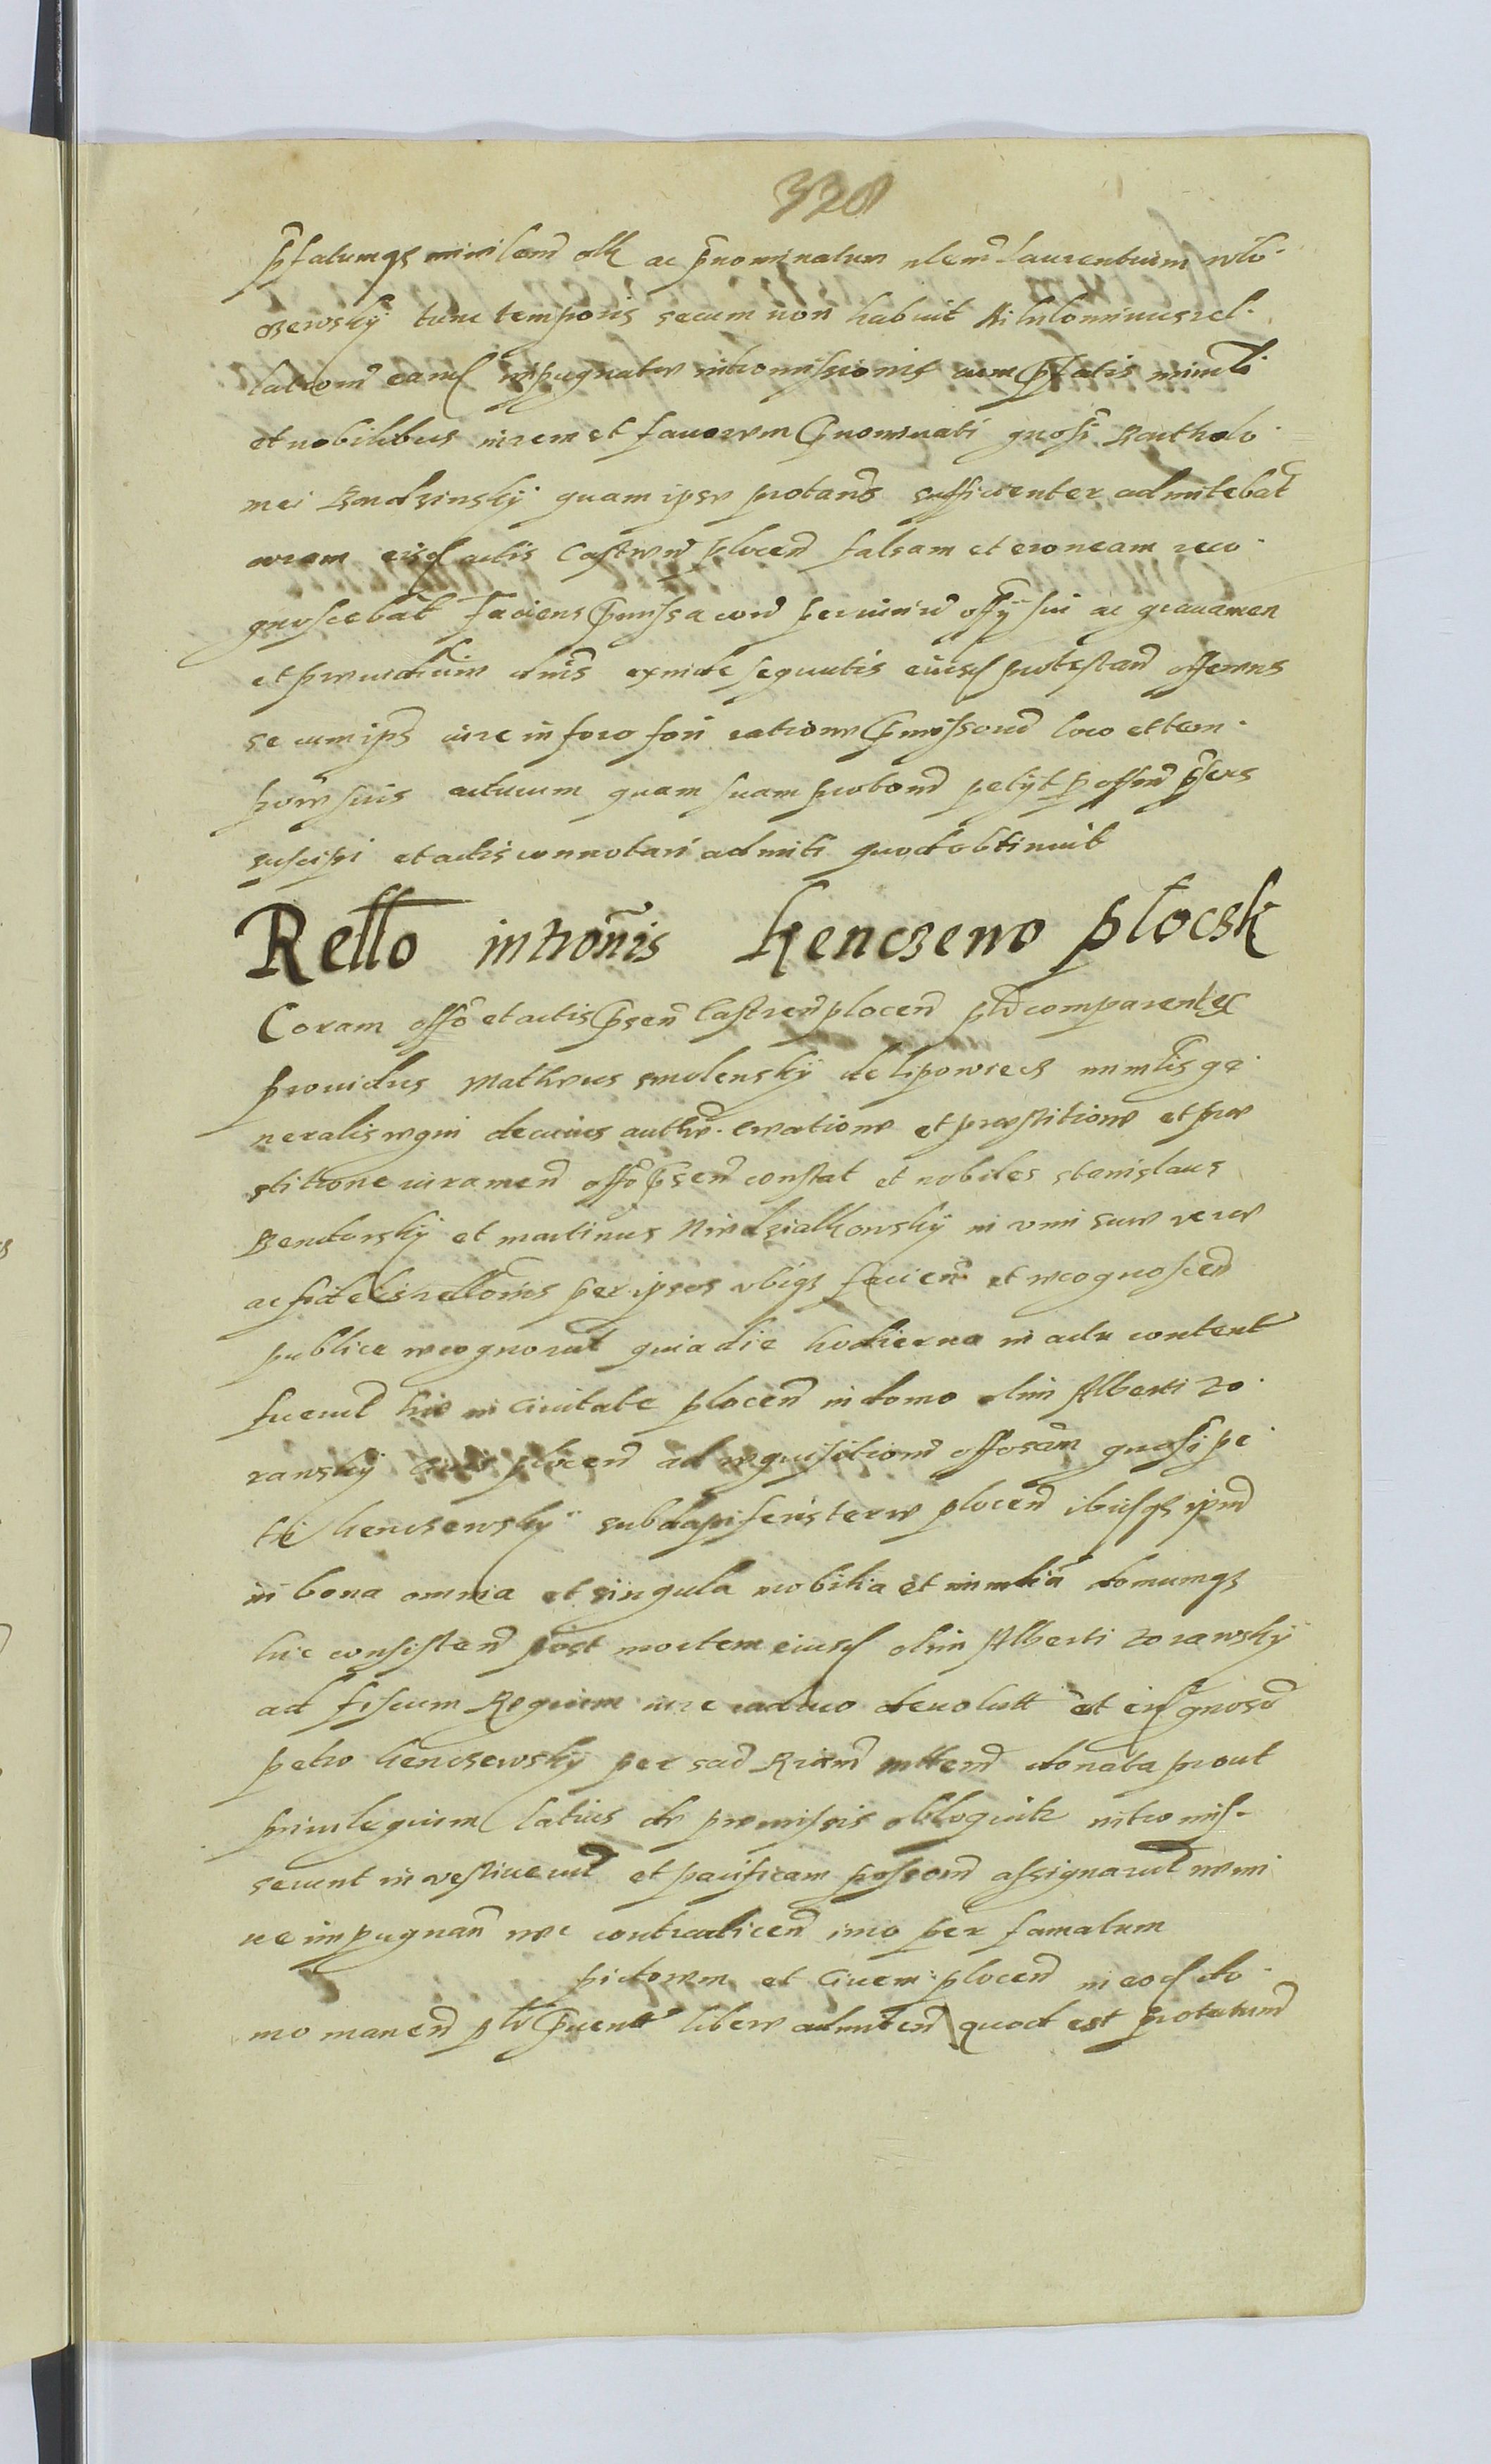 328
p̃fatumqz ministerialem ac p̃nominatum Laurentium Wło-
czewskÿ tunc temporis secum non habuit Nihilominus rel-
lationẽ eand impugnatae intromissionis cum p̃fatis minl̃i
et nobilibus in rem et favorem p̃nominati gnosi Bartholo-
mei Bendzinskÿ quam ipse protans sufficienter admitebat
coram eisd actis Castren plocen falsam et eroneam reco-
gnoscebat Faciens p̃missa officÿ sui ac gravamen
et preiudicium exinde sequutis eiusd protestan offerens
se cum ips iure in foro fori ratione p̃missorũ loco et tem-
pore suis acturum quam suam protõnẽ petÿt p offm̃ p̃sens
suscipi et actis connotari admiti quod obtinuit
Rel̃l̃o introm̃is Kenczewo płocsk
Coram offo et actis p̃sen Castren plocen pl̃r comparentes
providus Matheus Smolenskÿ de Lipowiecz minl̃is ge-
neralis regni de cuius auth. creatione et prestitione et pre
stitione iuramen offo p̃sen constat et nobiles Stanislaus
Bendorskÿ et Martinus Niedzialkowskÿ in vim sue vere
ac fidelis rellonis per ipsos ubiqz facien et recognoscen
publice recognorunt quia die hodierna in actu content
fuerunt hic in Civitate plocen in domo olim Alberti Zo-
rawskÿ Civis plocen ad requisitionẽ gnosi Pe-
tri Kenczewskÿ subdapiferis terre plocen ibusqz ipm
in bona omnia et singula mobilia et domumqz
hic consisten post mortem eiusd olim Alberti Zorawskÿ
ad fiscum Regium iure caduco devolutt et eid gnoso
Petro Kenczewskÿ per Sac donata prout
privilegium latius de premissis obloquitr intromis-
serunt investiverunt et pacificam posseõnẽ assignarunt nemi
ne impugnan nec contradicen imo per famatum
pictorem et Civem plocen in eod do-
mo manen libere admitten quod est protatum